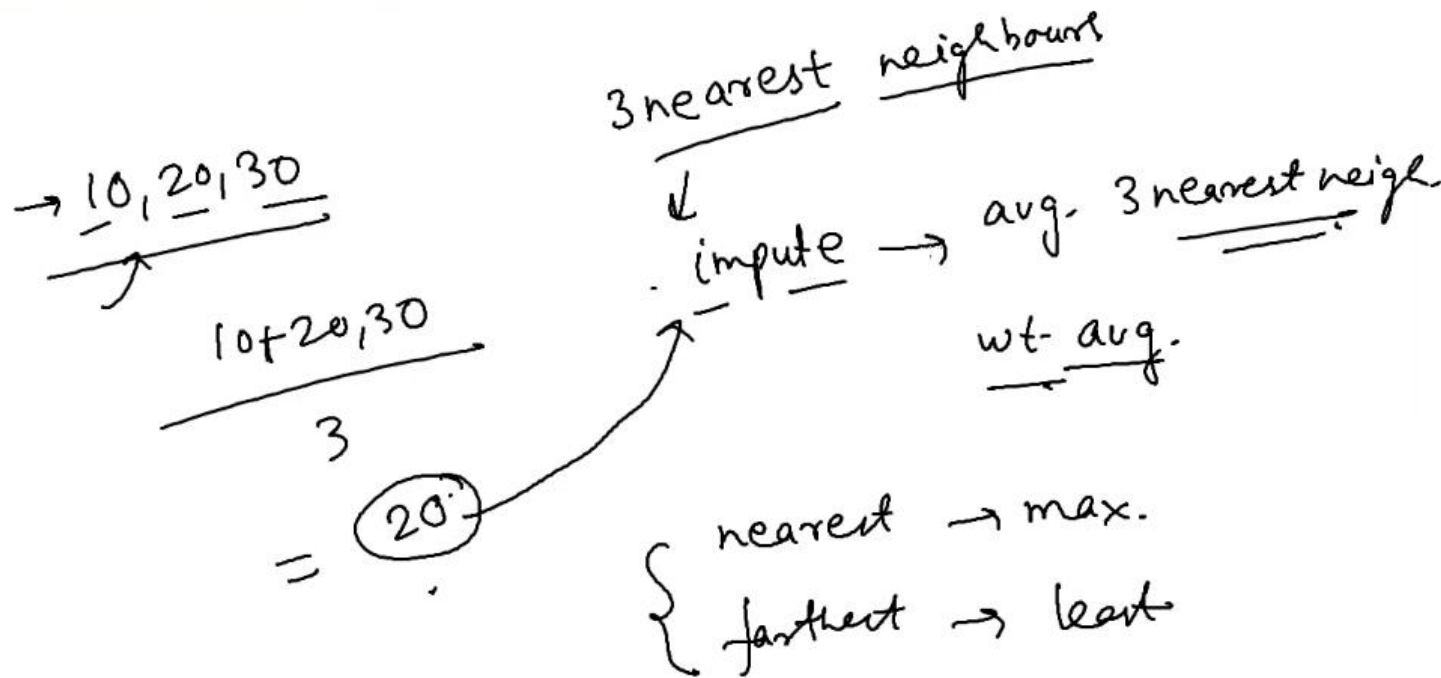 3 nearest neighbours
→ 10, 20, 30
↓
impute → avg. 3 nearest neigh.
wt- avg.
10+20,30
3
= 20
nearest → max.
farthest → least